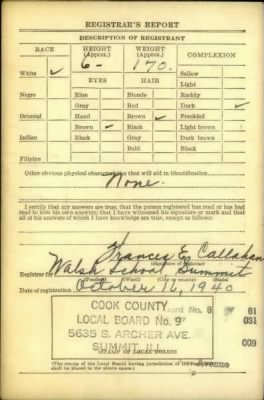 REGISTRAR'S REPORT
DESCRIPTION OF REGISTRANT
RACE HEIGHT (Approx.) WEIGHT (Approx.) COMPLEXION
6- 170.
White ✓ Sallow
EYES HAIR Light
Negro Blue Blonde Ruddy
Gray Red Dark ✓
Oriental Hazel Brown ✓ Freckled
Brown ✓ Black Light brown
Indian Black Gray Dark brown
Bald Black
Filipino
Other obvious physical characteristics that will aid in identification
None.
I certify that my answers are true; that the person registered has read or has had
read to him his own answers; that I have witnessed his signature or mark and that
all of his answers of which I have knowledge are true, except as follows:
Francis E. Callahan
(Signature of registrar)
Registrar for Walsh School Summit
Date of registration October 16, 1940
COOK COUNTY
LOCAL BOARD No. 97
5635 S. ARCHER AVE.
SUMMIT, ILL.
61
031
009
STAMP OF LOCAL BOARD
(The stamp of the Local Board having jurisdiction of the
shall be placed in the above space.)